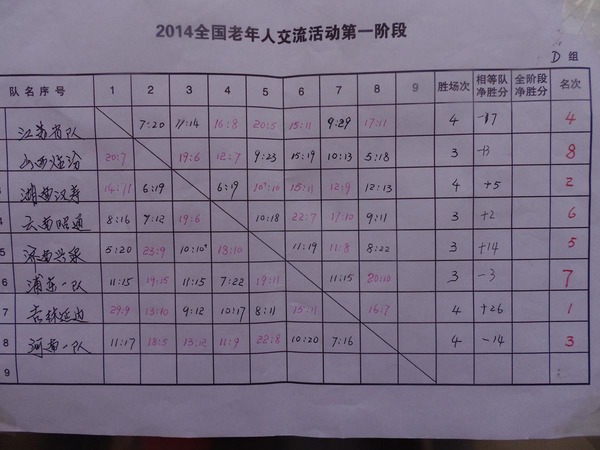 2014全国老年人交流活动第一阶段
D 组
队名序号 1 2 3 4 5 6 7 8 9 胜场次 相等队净胜分 全阶段净胜分 名次
江苏省队 7:20 11:14 16:8 20:5 15:11 9:29 17:11 4 -17 4
20:7 19:6 12:7 9:23 15:19 10:13 5:18 3 8
14:11 6:19 6:19 15:11 12:9 12:13 4 +5 2
云南昭通 8:16 7:12 19:6 10:18 22:7 17:10 9:11 3 +2 6
5 5:20 23:9 10:10 18:10 11:19 11:8 8:22 3 +14 5
6 浦东一队 11:15 19:15 11:15 7:22 19:11 11:15 20:10 3 -3 7
7 吉林延边 29:9 13:10 9:12 10:17 8:11 15:11 16:7 4 +26 1
8 河南一队 11:17 18:5 13:12 11:9 22:8 10:20 7:16 4 -14 3
9